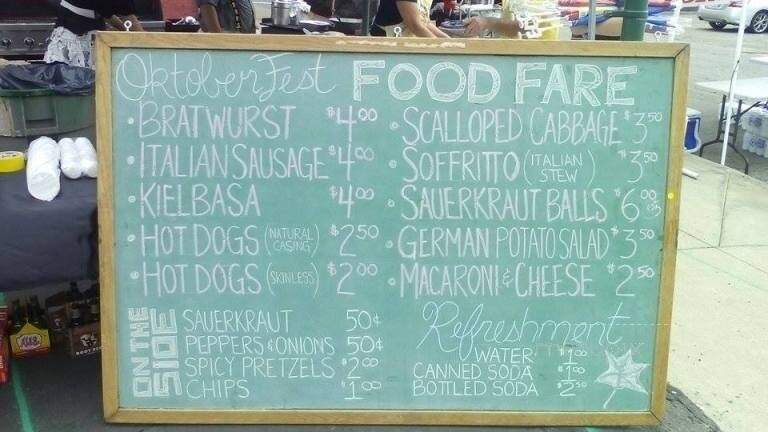 Oktoberfest FOOD FARE
• BRATWURST $4.00
• ITALIAN SAUSAGE $4.00
• KIELBASA $4.00
• HOT DOGS (NATURAL CASING) $2.50
• HOT DOGS (SKINLESS) $2.00
• SCALLOPED CABBAGE $3.50
• SOFFRITTO (ITALIAN STEW) $3.50
• SAUERKRAUT BALLS $6.00
• GERMAN POTATO SALAD $3.50
• MACARONI & CHEESE $2.50
ON THE SIDE
SAUERKRAUT 50¢
PEPPERS & ONIONS 50¢
SPICY PRETZELS $2.00
CHIPS $1.00
Refreshment
WATER $1.00
CANNED SODA $1.00
BOTTLED SODA $2.50